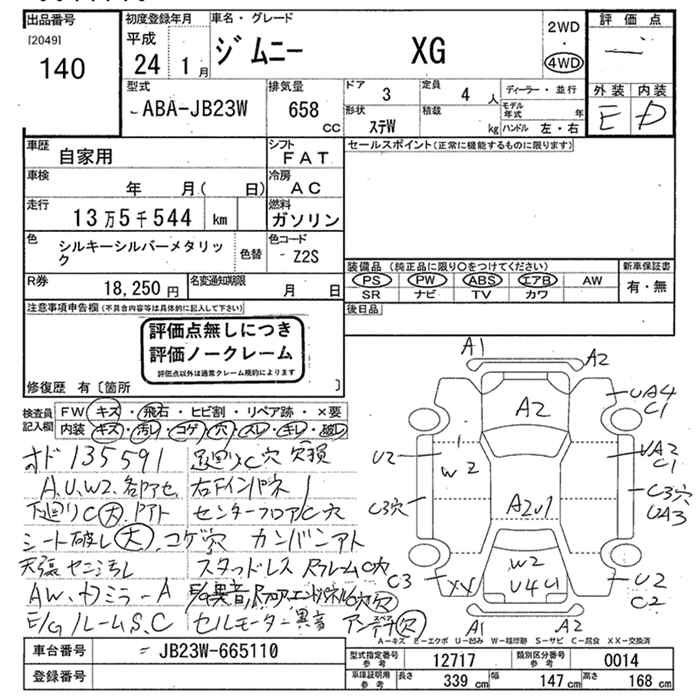 出品番号
[2049]
140
初度登録年月
平成
24 1月
車名・グレード
ジムニー XG
2WD
・
4WD
評価点
外装 内装
E D
型式
ABA-JB23W
排気量
658 CC
ドア 3
定員 4 人
形状 ステW
積載 kg
ディーラー・並行
モデル年式 年
ハンドル 左・右
車歴 自家用
シフト FAT
セールスポイント(正常に機能するものに限ります)
車検 年 月( 日)
冷房 AC
走行 13万5千544 km
燃料 ガソリン
色 シルキーシルバーメタリック
色替
色コード Z2S
R券 18,250 円
名変通知期限 月 日
装備品 (純正品に限り○をつけてください)
PS PW ABS エアB AW
SR ナビ TV カワ
新車保証書
有・無
注意事項申告欄(不具合内容等は具体的に記入して下さい)
後日品
評価点無しにつき
評価ノークレーム
評価点以外は通常クレーム規約によります
修復歴 有〔箇所 〕
検査員記入欄
FW キズ・飛石・ヒビ割・リペア跡・×要
内装 キズ・汚レ・コゲ・穴・スレ・キレ・破レ
オド 135591 足廻りC穴 欠損
A、U、W2、各部アセ 右下インパネ
下廻りC大、アト センターフロアC穴
シート破レ大、コゲ穴 カンバンアト
天張ヤニ汚レ スタッドレス RフレームC穴
AW、カミラーA E/G異音、
E/GルームS、C セルモーター異音 アンテナ欠
A1
A2
A2
UA4
C1
U2
W2
UA2
C1
C3穴
A2U1
C3穴
UA3
C3
XX
W2
U4U1
U2
C2
A1
A2
A-キズ E-エクボ U-凹み W-補修跡 S-サビ C-腐食 XX-交換済
車台番号 JB23W-665110
登録番号
型式指定番号 参考 12717
類別区分番号 参考 0014
車庫証明用 参考 長さ 339 cm 幅 147 cm 高さ 168 cm